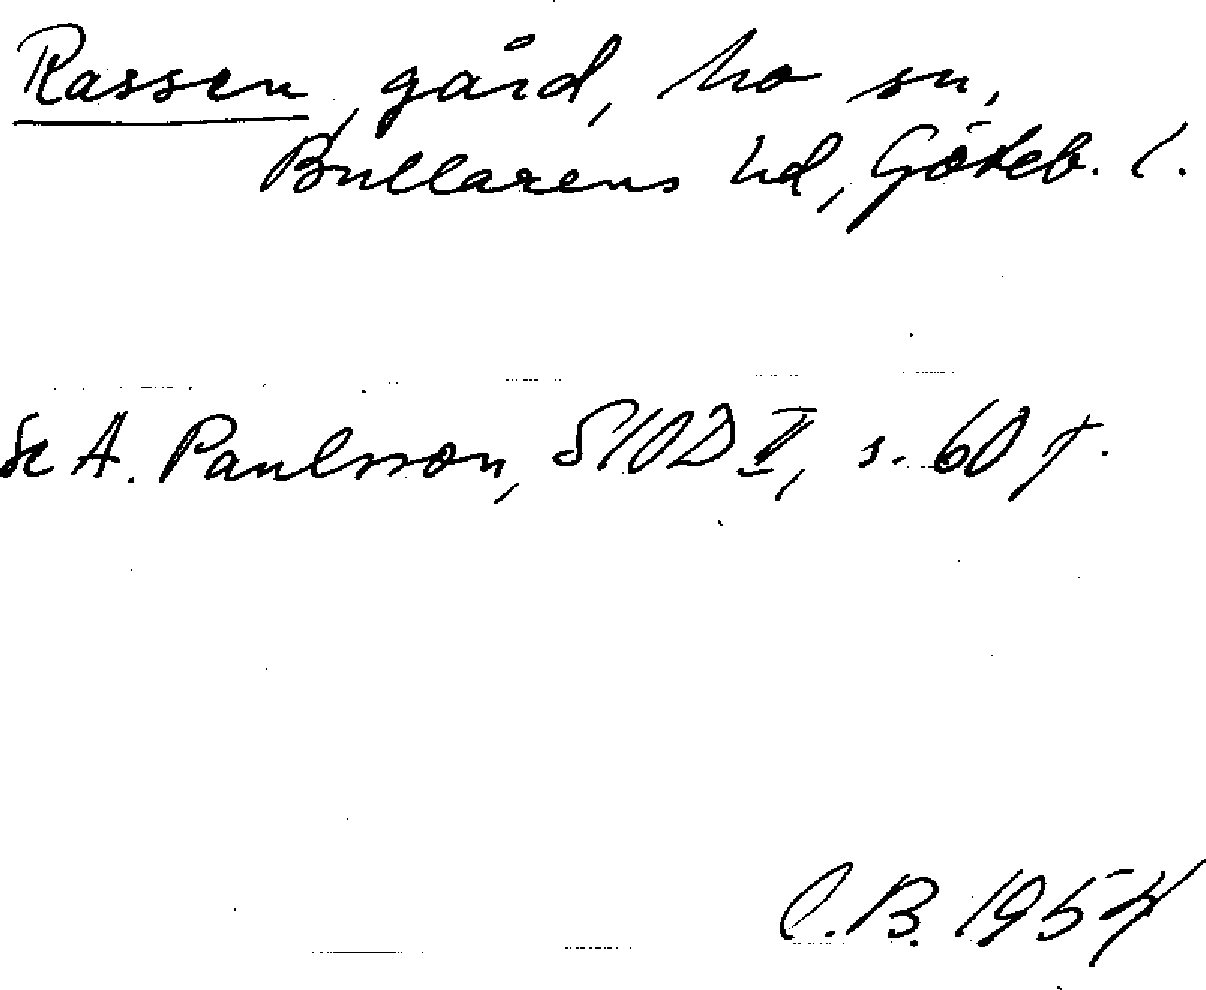 Rassen, gård, Mo sn,
Bullarens hd, Göteb. l.
Se A. Paulsson, SIOD II, s. 60 f.
C.B. 1954